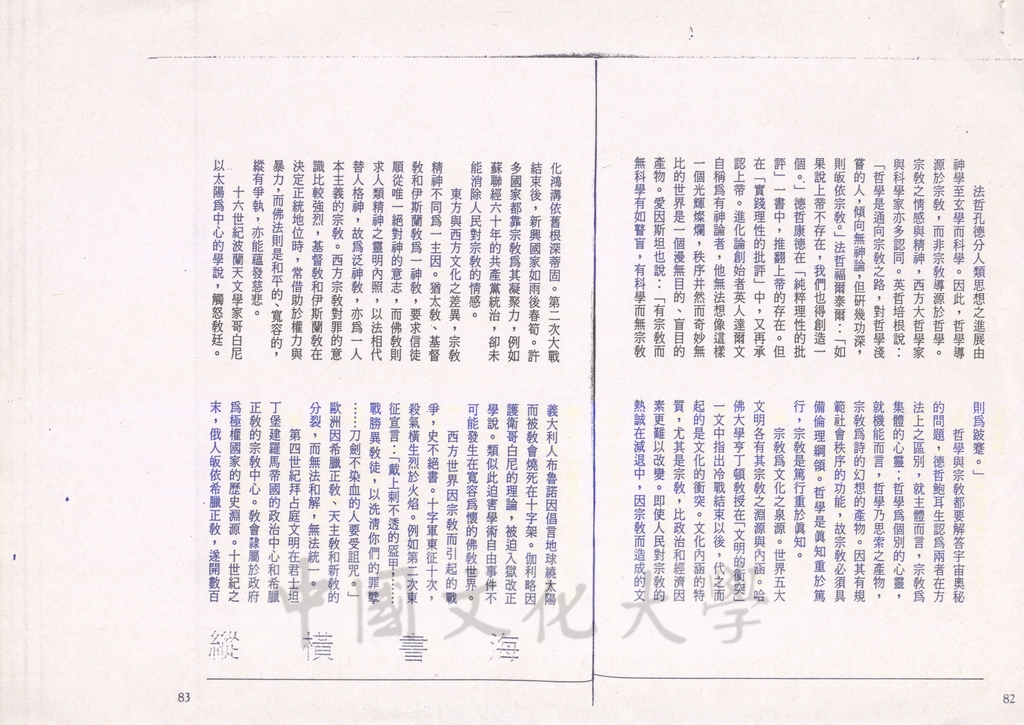 法哲孔德分人類思想之進展由
神學至玄學而科學。因此，哲學導
源於宗教，而非宗教導源於哲學。
宗教之情感與精神，西方大哲學家
與科學家亦多認同。英哲培根說：
「哲學是通向宗教之路，對哲學淺
嘗的人，傾向無神論，但研幾功深，
則皈依宗教。」法哲福爾泰爾：「如
果說上帝不存在，我們也得創造一
個。」德哲康德在「純粹理性的批
評」一書中，推翻上帝的存在。但
在「實踐理性的批評」中，又再承
認上帝。進化論創始者英人達爾文
自稱為有神論者，他無法想像這樣
一個光輝燦爛，秩序井然而奇妙無
比的世界是一個漫無目的、盲目的
產物。愛因斯坦也說：「有宗教而
無科學有如瞽盲，有科學而無宗教
則為跛蹇。」
哲學與宗教都要解答宇宙奧秘
的問題，德哲鮑耳生認為兩者在方
法上之區別，就主體而言，宗教為
集體的心靈；哲學為個別的心靈，
就機能而言，哲學乃思索之產物，
宗教為詩的幻想的產物。因其有規
範社會秩序的功能，故宗教必須具
備倫理綱領。哲學是真知重於篤
行，宗教是篤行重於真知。
宗教為文化之泉源。世界五大
文明各有其宗教之淵源與內涵。哈
佛大學亨丁頓教授在「文明的衝突」
一文中指出冷戰結束以後，代之而
起的是文化的衝突。文化內涵的特
質，尤其是宗教，比政治和經濟因
素更難以改變。即使人民對宗教的
熱誠在減退中，因宗教而造成的文
82
化鴻溝依舊根深蒂固。第二次大戰
結束後，新興國家如雨後春筍。許
多國家都靠宗教為其凝聚力，例如
蘇聯經六十年的共產黨統治，卻未
能消除人民對宗教的情感。
東方與西方文化之差異，宗教
精神不同為一主因。猶太教、基督
教和伊斯蘭教為一神教，要求信徒
順從唯一絕對神的意志，而佛教則
求人類精神之靈明內照，以法相代
替人格神，故為泛神教，亦為一人
本主義的宗教。西方宗教對罪的意
識比較強烈，基督教和伊斯蘭教在
決定正統地位時，常借助於權力與
暴力，而佛法則是和平的、寬容的，
縱有爭執，亦能蘊發慈悲。
十六世紀波蘭天文學家哥白尼
以太陽為中心的學說，觸怒教廷。
義大利人布魯諾因倡言地球繞太陽
而被教會燒死在十字架。伽利略因
護衛哥白尼的理論，被迫入獄改正
學說。類似此迫害學術自由事件不
可能發生在寬容為懷的佛教世界。
西方世界因宗教而引起的戰
爭，史不絕書。十字軍東征十次，
殺氣橫生烈於火焰。例如第二次東
征宣言：「戴上刺不透的盔甲……
戰勝異教徒，以洗清你們的罪孽
……刀劍不染血的人要受詛咒。」
歐洲因希臘正教、天主教和新教的
分裂，而無法和解，無法統一。
第四世紀拜占庭文明在君士坦
丁堡建羅馬帝國的政治中心和希臘
正教的宗教中心。教會隸屬於政府
為極權國家的歷史淵源。十世紀之
末，俄人皈依希臘正教，遂開數百
縱橫書海
83
中國文化大學